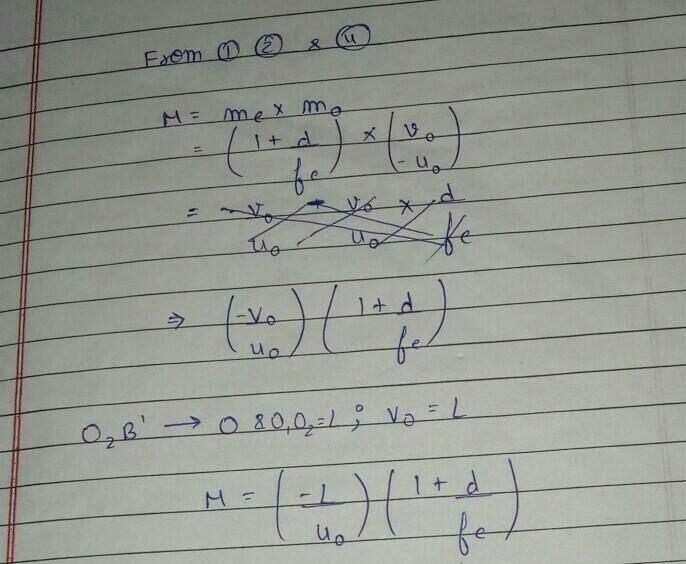 From ① ② & ④
M = me × mo
= (1 + d/fe) × (vo/-uo)
⇒ (-vo/uo) (1 + d/fe)
O₂B' → O & O₁O₂ = L ; vo = L
M = (-L/uo) (1 + d/fe)